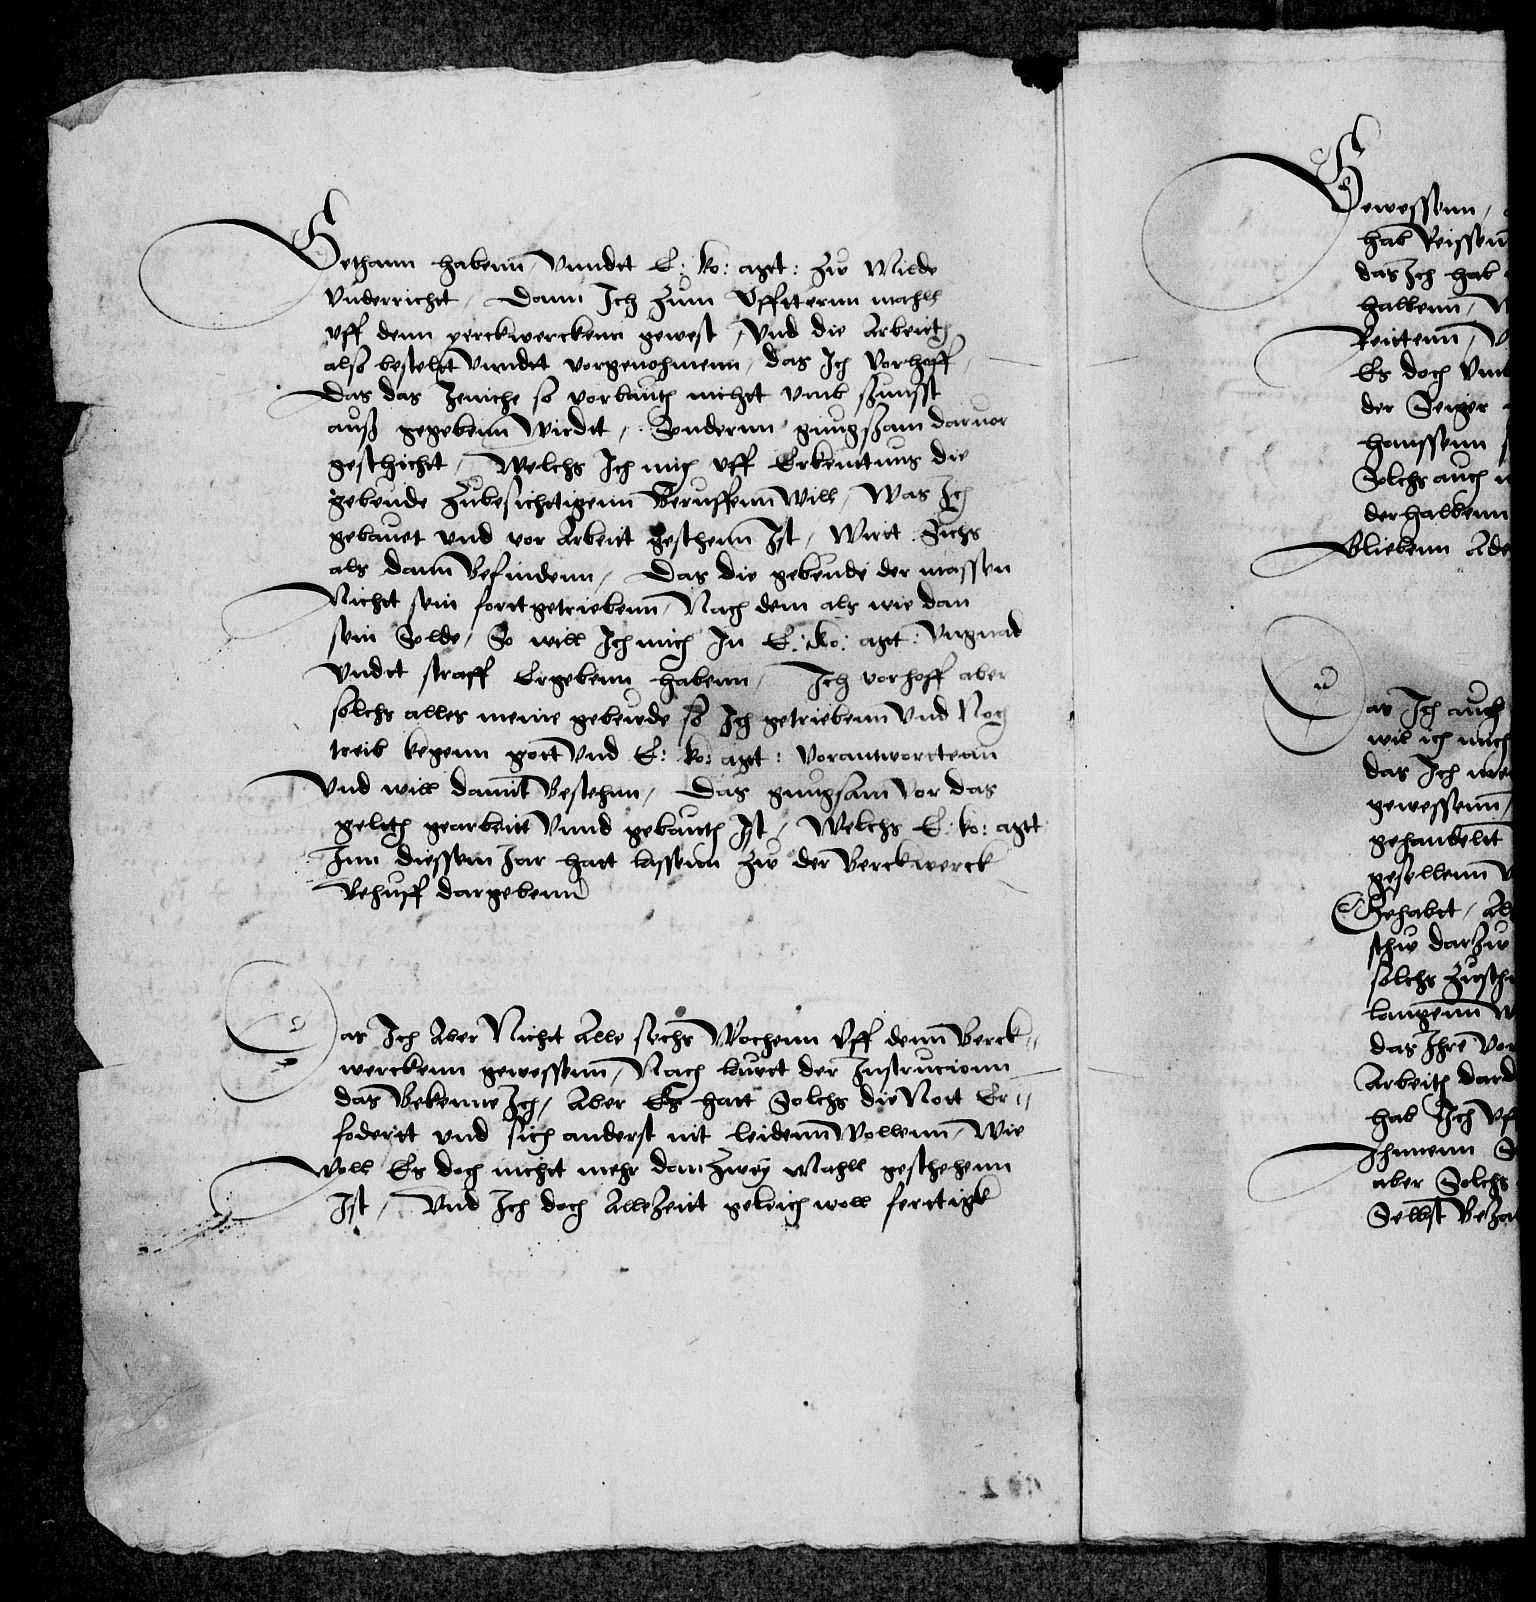 Gethann habenn, Vnndt E: ko: agt: zw Milde
Vnderricht, Dann Ich zum Vffternn mahll
vff denn perckwerckenn gewest, Vnd die Arbeith
also bestelt Vnndt vorgenohmenn, das Ich Vorhoff,
Das das Jeniche so vorbauth nicht vmb sunsst
auß gegebenn Wirdt, Sonderun gnugsam daruor
geschicht, Welchs Ich mich vff Erkenttnus die
gebeude Zubesichtigenn Beruffenn Will, Was Ich
gebauet vnd vor Arbeit geschenn Ist, Wirtt Sichs
als dann Befindenn, Das die gebeude der massen
Nicht sein fortgetriebenn, Nach dem als wie dan
sein Solde, So will Ich mich In E: ko: agt: Vngnad
Vndt straff Ergebenn habenn, Ich vorhoff aber
solchs alles meine gebeude so Ich getriebenn Vnd Noch
treib kegenn gott Vnd E: ko: agt: Vorantworttenn
Vnd will damit Bestehnn, Das gnugsam Vor das
geltth gearbeitt Vnnd gebauth Ist, Welchs E: ko: agtt
Inn diessem Jar hatt lassenn zw der Berckwerck
Behuff dargebenn
Das Ich Aber Nicht Alle sechs Wochenn Vff denn Berck
werckenn gewessenn, Nach lautt der Instrucionn
das Bekenne Ich, Aber Es hatt Solchs die Nott Er
fodertt vnd sich anderst nit leidenn Wollenn, Wie
Woll Es doch nicht mehr dan Zwey Mahll geschehenn
Ist, Vnd Ich doch AlleZeitt geleich woll ferttigk
Gewessenn,
hab Reissenn
das Ich hab
halbenn,
Reittenn,
Es doch Vmb
der Seiger
haussenn
Solchs auch
derhalbenn
Bliebenn
Das Ich auch
wil ich mich
das Ich
gewessenn,
gehandeltt
gesellenn
Gehabt,
darzw
solchs
langenn
das Ihre
Arbeith
hab Ich
Ihnnenn
aber Solchs
Selbst